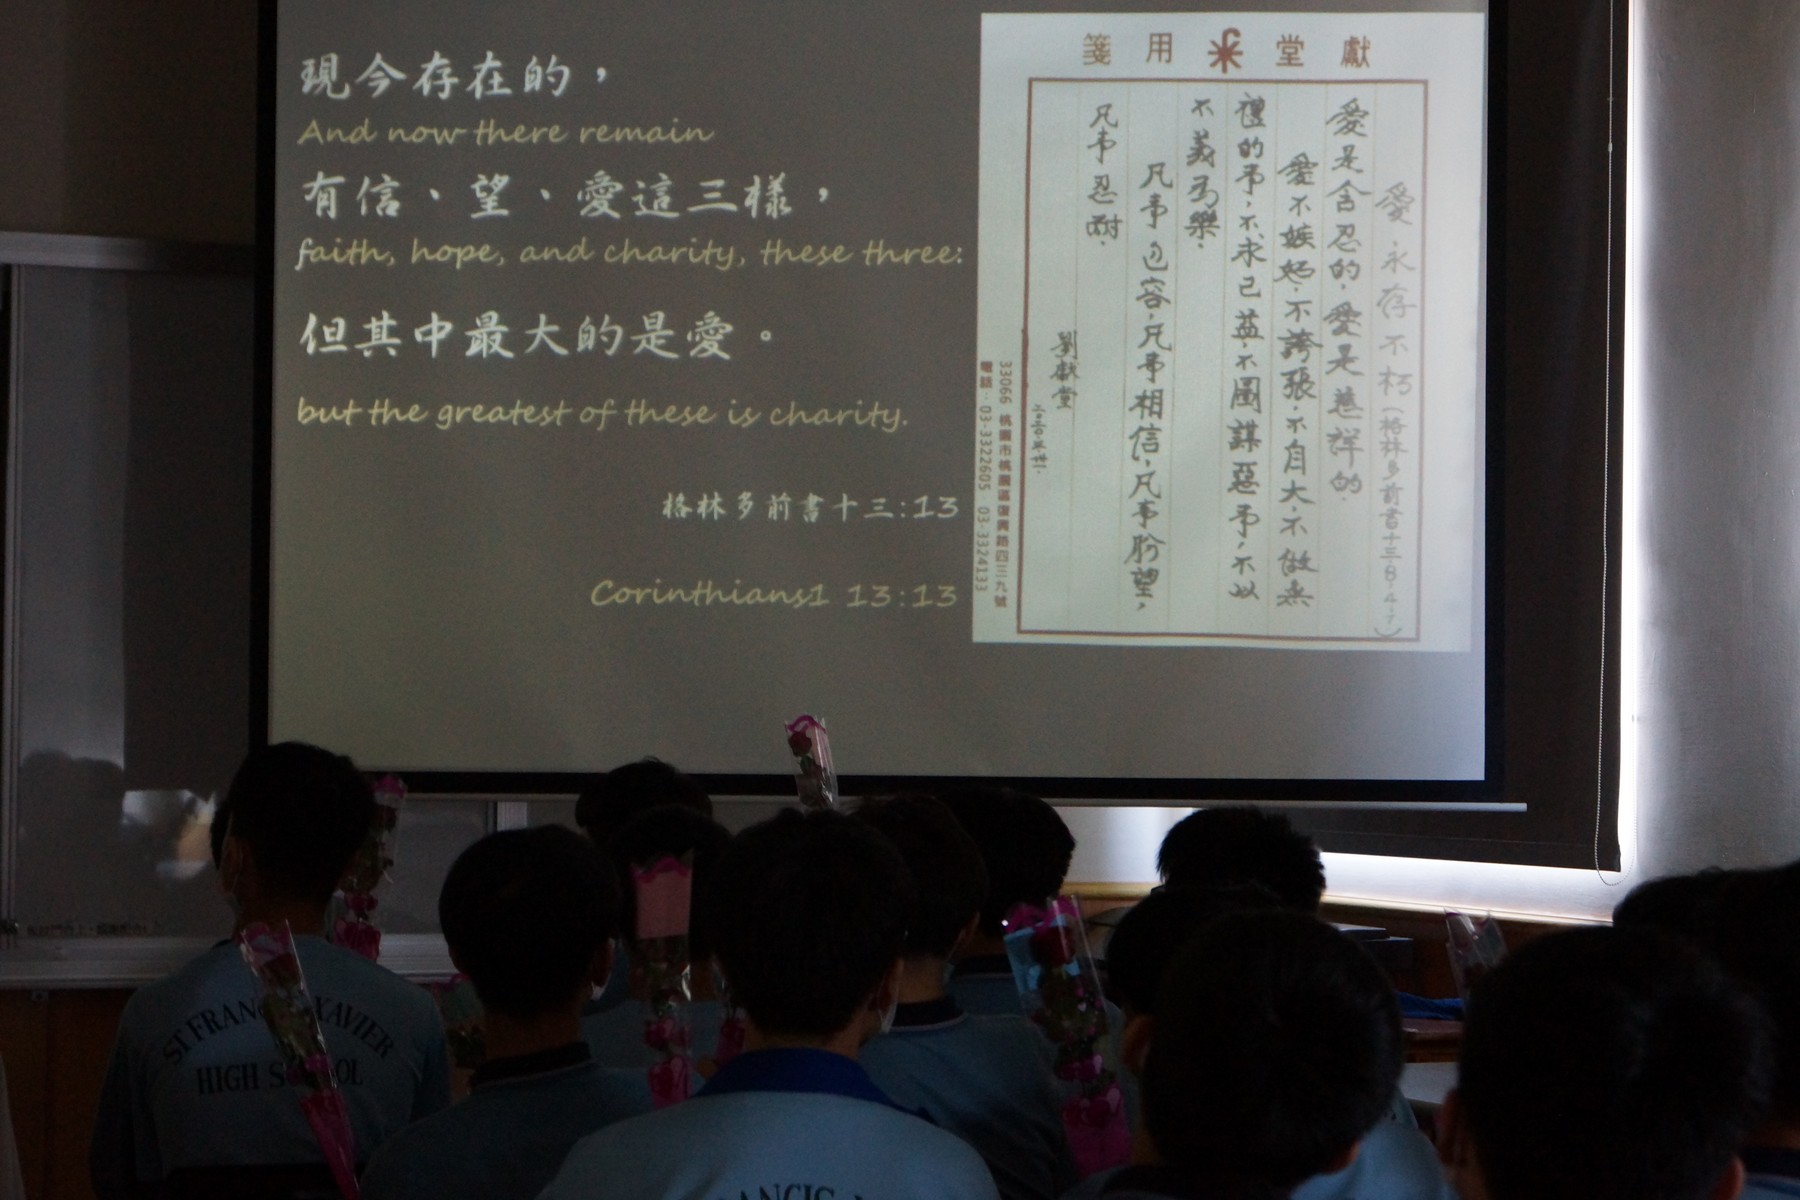 現今存在的，
And now there remain
有信、望、愛這三樣，
faith, hope, and charity, these three:
但其中最大的是愛。
but the greatest of these is charity.
格林多前書十三:13
Corinthians1 13:13
獻堂用箋
愛，永存不朽(格林多前書十三·8·4-7)
愛是含忍的，愛是慈祥的
愛不嫉妒，不誇張，不自大，不做無
禮的事，不求己益，不圖謀惡事，不以
不義為樂，
凡事包容，凡事相信，凡事盼望，
凡事忍耐。
劉獻堂
33066 桃園市桃園區復興路四三九號
電話：03-3322605 03-3324133
ST FRANCIS XAVIER
HIGH SCHOOL